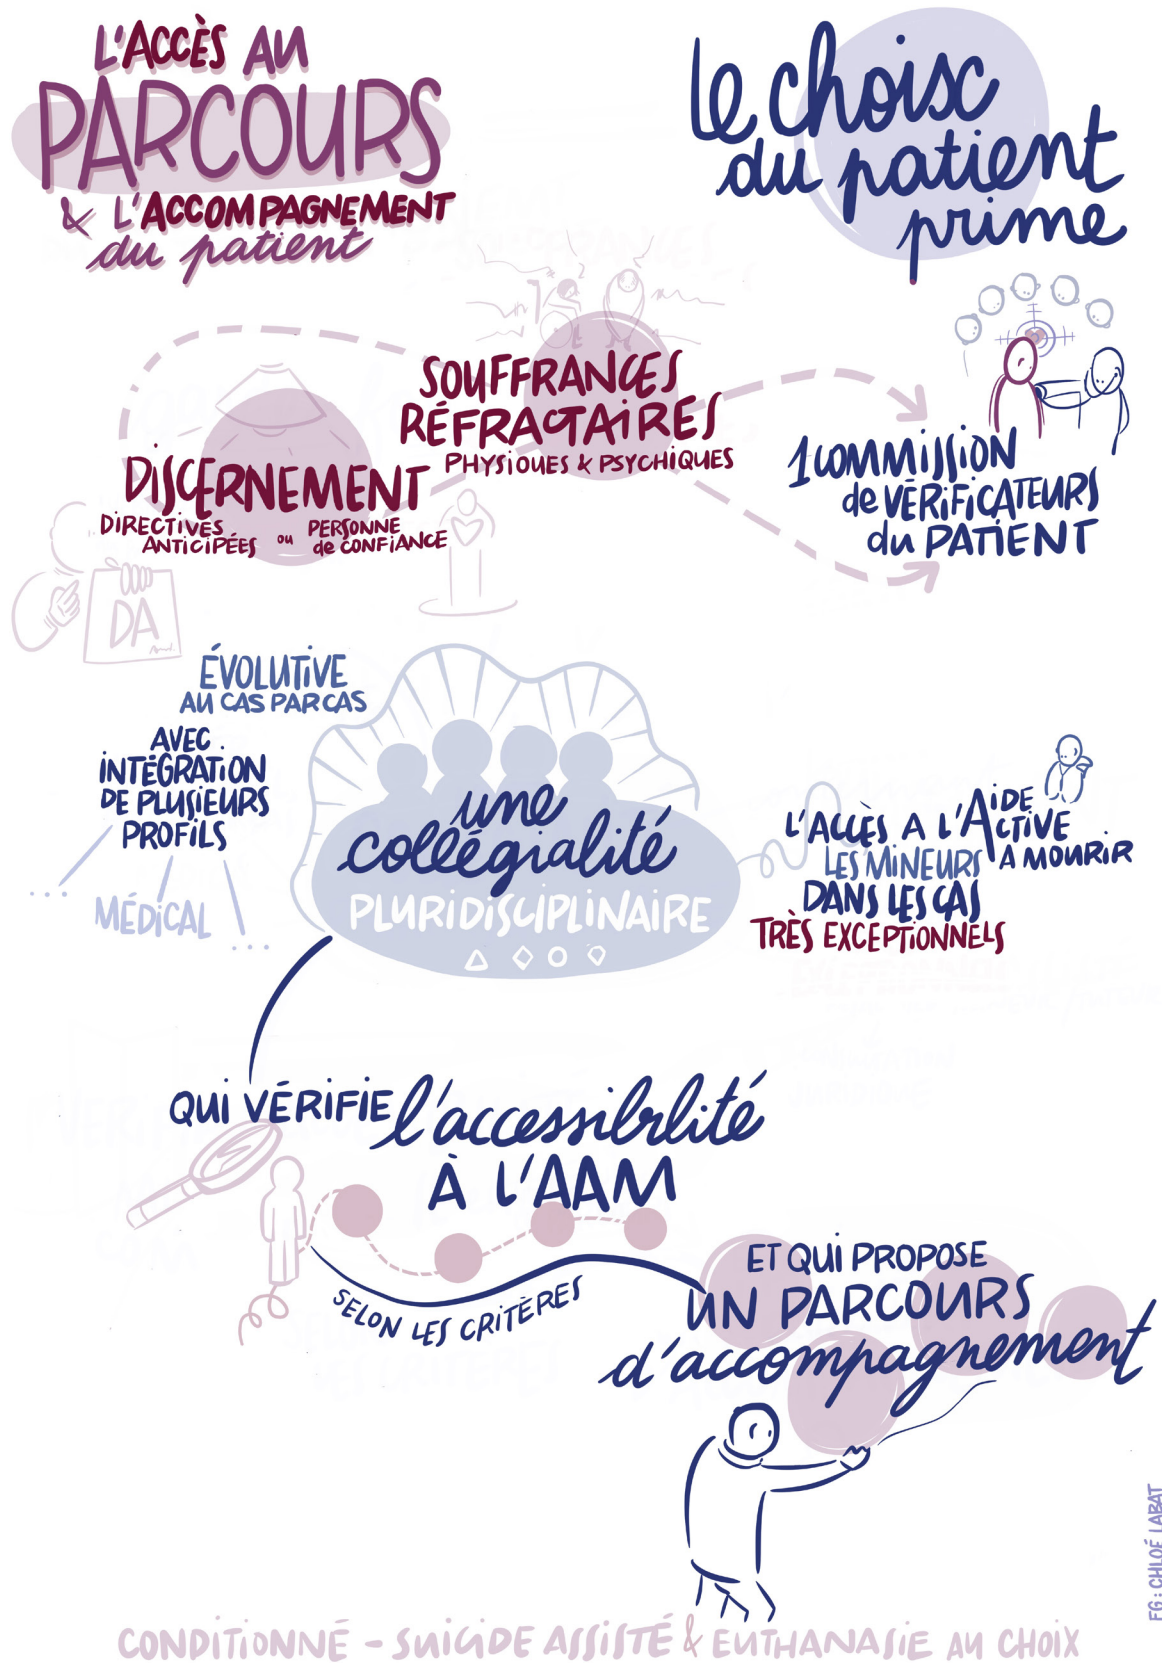 L'ACCÈS AU
PARCOURS
& L'ACCOMPAGNEMENT
du patient
le choix
du patient
prime
SOUFFRANCES
RÉFRACTAIRES
PHYSIQUES & PSYCHIQUES
DISCERNEMENT
DIRECTIVES
ANTICIPÉES
ou
PERSONNE
de CONFIANCE
DA
1 COMMISSION
de VÉRIFICATEURS
du PATIENT
ÉVOLUTIVE
AU CAS PAR CAS
AVEC
INTÉGRATION
DE PLUSIEURS
PROFILS
...
MÉDICAL
...
une
collégialité
PLURIDISCIPLINAIRE
L'ACCÈS A L'AIDE
ACTIVE
A MOURIR
LES MINEURS
DANS LES CAS
TRÈS EXCEPTIONNELS
QUI VÉRIFIE l'accessibilité
À L'AAM
SELON LES CRITÈRES
ET QUI PROPOSE
UN PARCOURS
d'accompagnement
FG : CHLOÉ LABAT
CONDITIONNÉ - SUICIDE ASSISTÉ & EUTHANASIE AU CHOIX